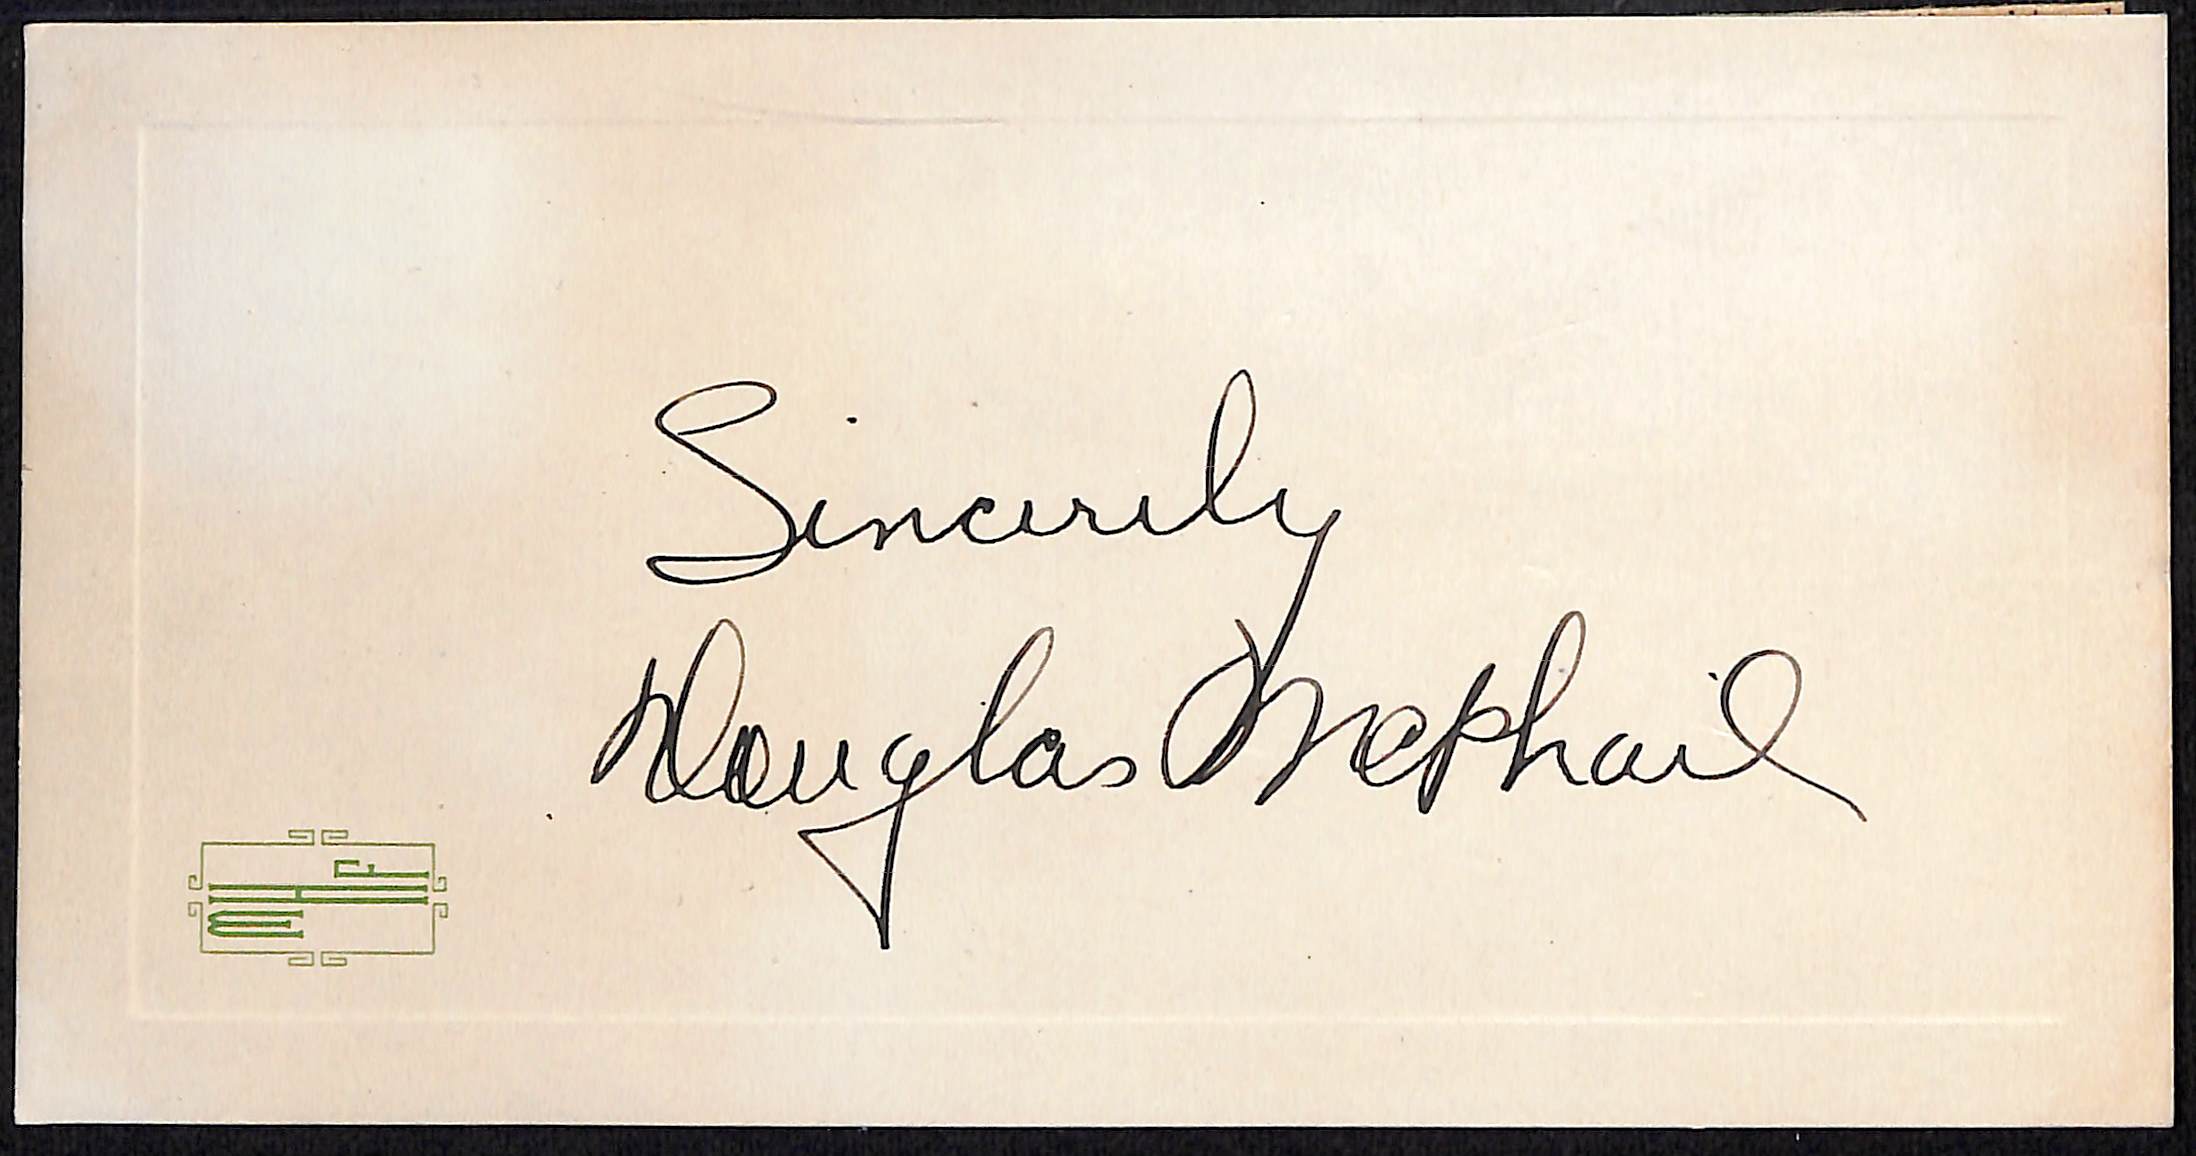 Sincerely
Douglas McPhail